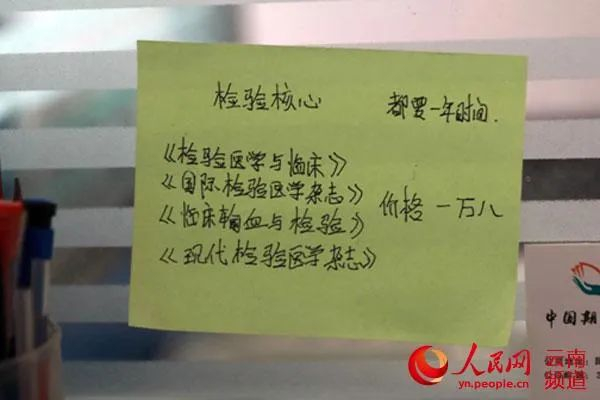 检验核心 都要一年时间.
《检验医学与临床》
《国际检验医学杂志》
《临床输血与检验》
《现代检验医学杂志》
价格 一万八
中国期
人民网 云南频道
yn.people.cn